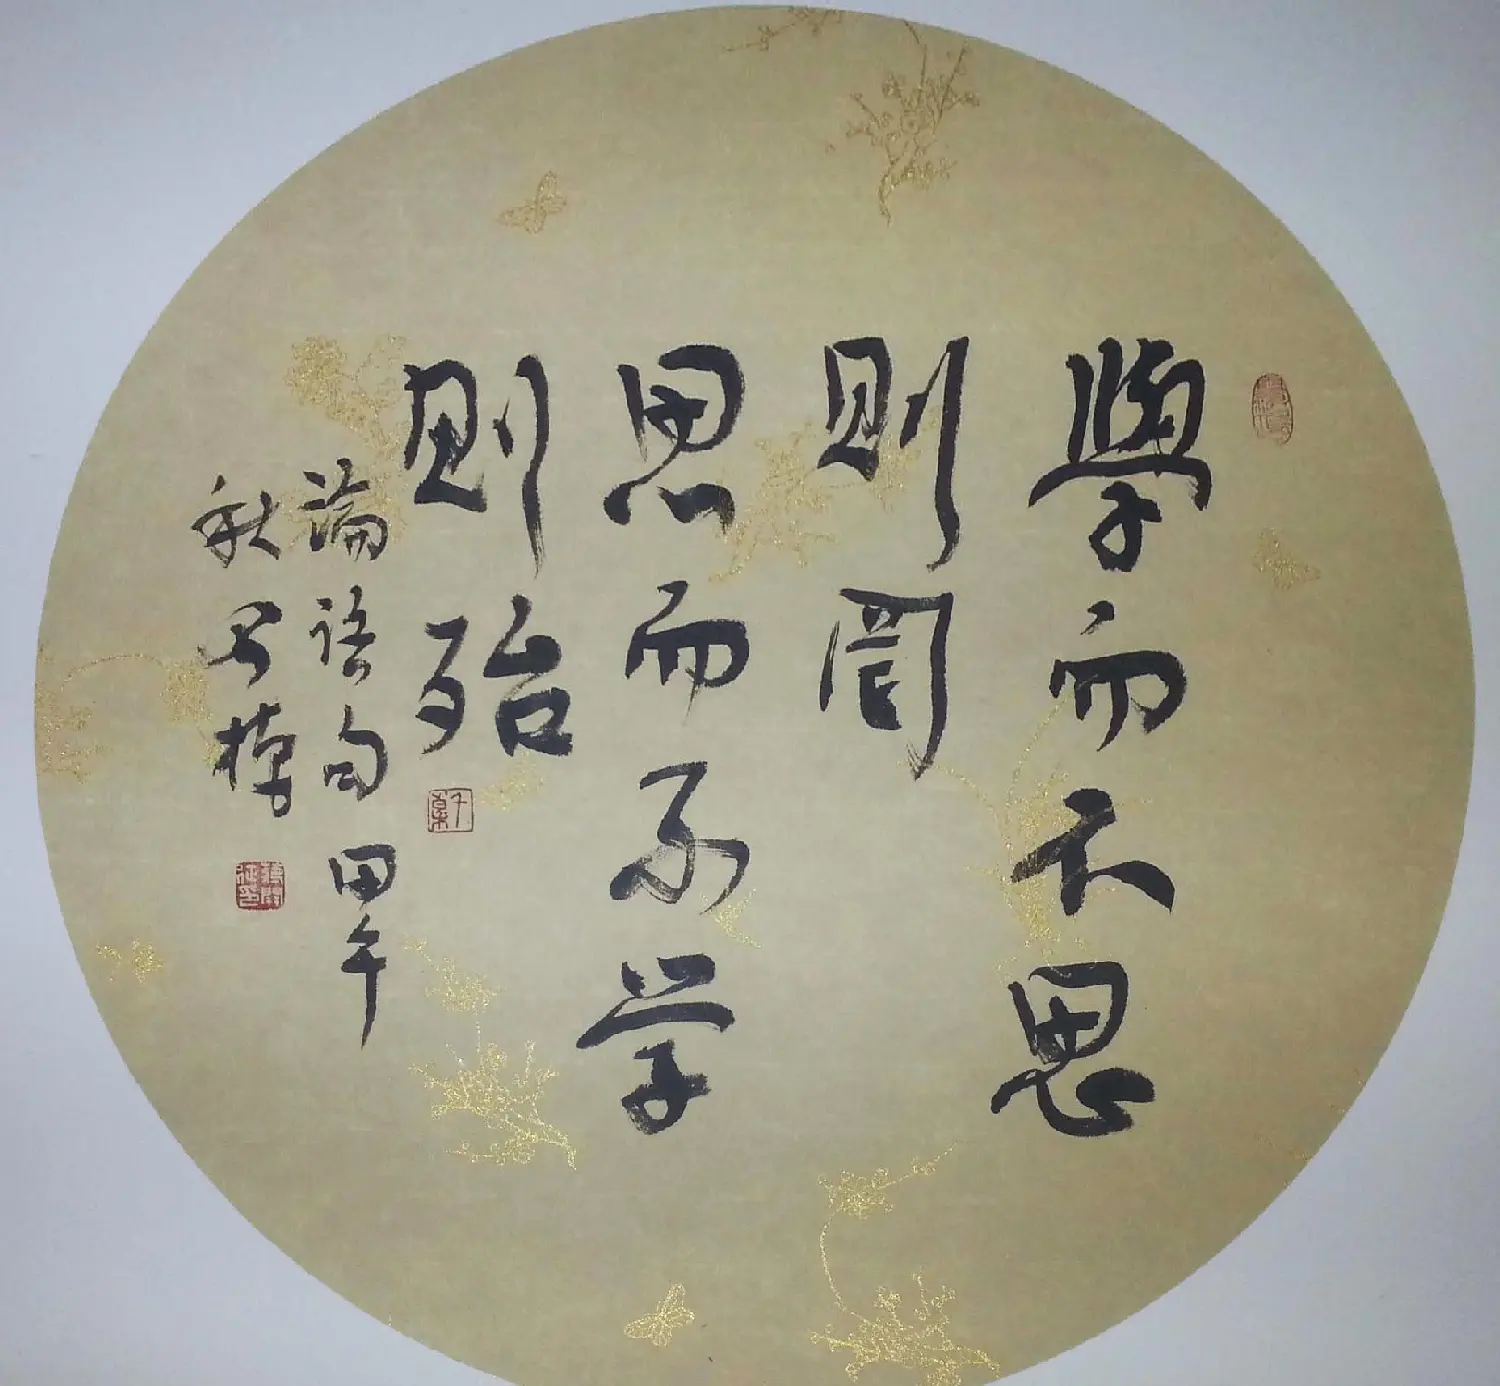 學而不思
則罔
思而不学
則殆
論語句甲午
秋